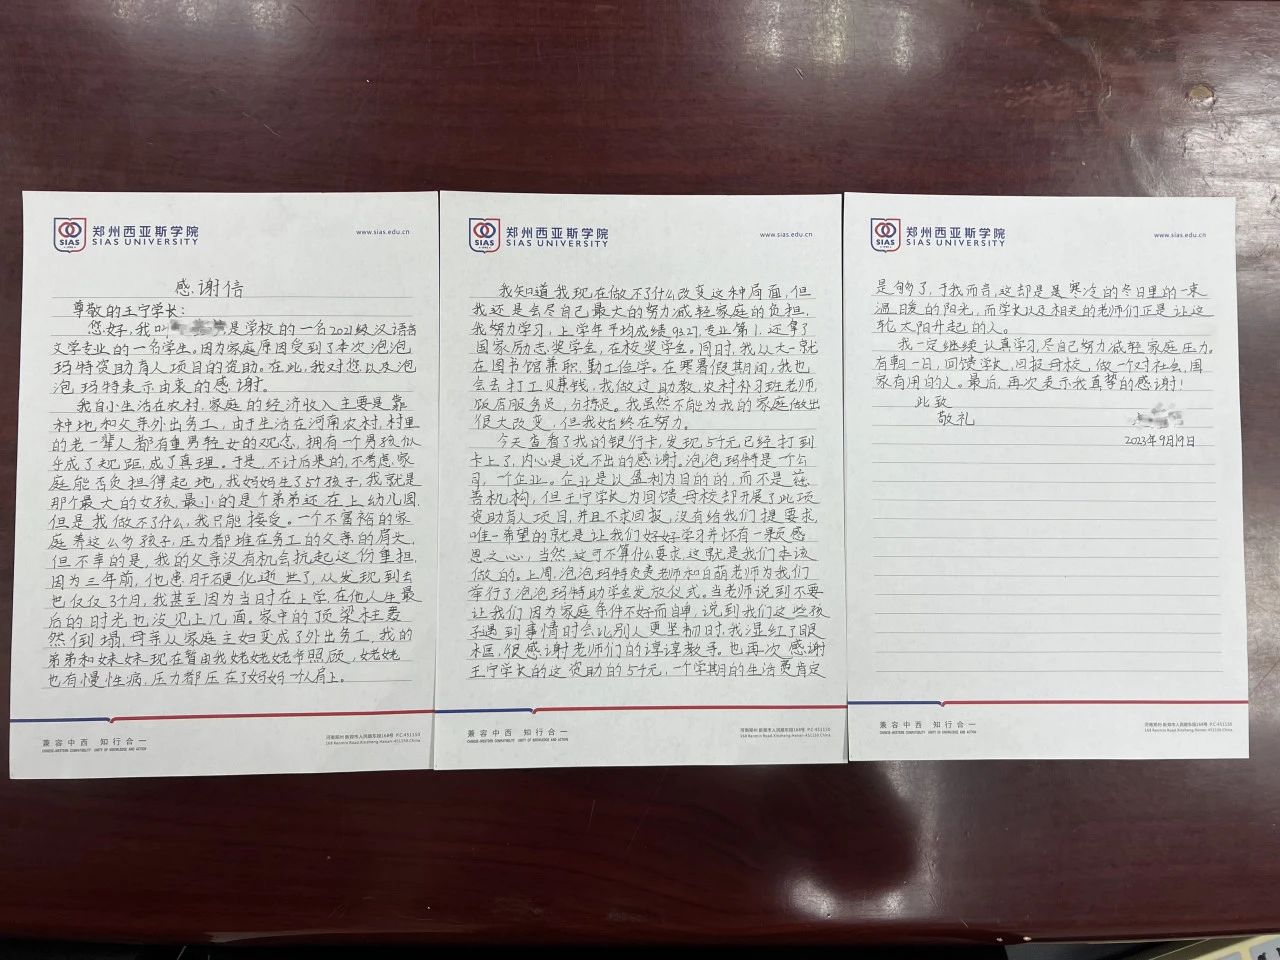 SIAS
郑州西亚斯学院
SIAS UNIVERSITY
www.sias.edu.cn
感谢信
尊敬的王宁学长：
您好，我叫是学校的一名2021级汉语言
文学专业的一名学生。因为家庭原因受到了本次泡泡
玛特资助育人项目的资助。在此，我对您以及泡
泡玛特表示由衷的感谢。
我自小生活在农村，家庭的经济收入主要是靠
种地和父亲外出务工，由于生活在河南农村，村里
的老一辈人都有重男轻女的观念，拥有一个男孩似
乎成了规距，成了真理。于是，不计后果的，不考虑家
庭能否负担得起地，我妈妈生了5个孩子，我就是
那个最大的女孩，最小的是个弟弟还在上幼儿园，
但是我做不了什么，我只能接受。一个不富裕的家
庭养这么多孩子，压力都堆在务工的父亲的肩头，
但不幸的是，我的父亲没有机会抗起这份重担，
因为三年前，他患肝硬化逝世了，从发现到去
也仅仅3个月，我甚至因为当时在上学，在他人生最
后的时光也没见上几面。家中的顶梁柱轰
然倒塌，母亲从家庭主妇变成了外出务工，我的
弟弟和妹妹现在暂由我姥姥姥爷照顾，姥姥
也有慢性病，压力都压在了妈妈一个人肩上。
兼容中西 知行合一
CHINESE-WESTERN COMPATIBILITY UNITY OF KNOWLEDGE AND ACTION
河南郑州 新郑市人民路东段168号 P.C:451150
168 Renmin Road,Xinzheng,Henan 451150,China
SIAS
郑州西亚斯学院
SIAS UNIVERSITY
www.sias.edu.cn
我知道我现在做不了什么改变这种局面，但
我还是会尽自己最大的努力减轻家庭的负担，
我努力学习，上学年平均成绩93.27，专业第1，还拿了
国家励志奖学金，在校奖学金。同时，我从大一就
在图书馆兼职，勤工俭学。在寒暑假期间，我也
会去打工贝兼钱，我做过助教，农村补习班老师，
饭店服务员，分拣员。我虽然不能为我的家庭做出
很大改变，但我始终在努力。
今天查看了我的银行卡，发现5千元已经打到
卡上了，内心是说不出的感谢。泡泡玛特是一个公
司，一个企业。企业是以盈利为目的的，而不是慈
善机构，但王宁学长为回馈母校却开展了此项
资助育人项目，并且不求回报，没有给我们提要求，
唯一希望的就是让我们好好学习并怀有一颗感
恩之心，当然，这可不算什么要求，这就是我们本该
做的。上周，泡泡玛特负责老师和白萌老师为我们
举行了泡泡玛特助学金发放仪式。当老师说到不要
让我们因为家庭条件不好而自卑，说到我们这些孩
子遇到事情时会比别人更坚韧时，我湿红了眼
眶，很感谢老师们的谆谆教导。也再次感谢
王宁学长的这资助的5千元，一个学期的生活费肯定
兼容中西 知行合一
CHINESE-WESTERN COMPATIBILITY UNITY OF KNOWLEDGE AND ACTION
河南郑州 新郑市人民路东段168号 P.C:451150
168 Renmin Road,Xinzheng,Henan 451150,China
SIAS
郑州西亚斯学院
SIAS UNIVERSITY
www.sias.edu.cn
是够了，于我而言，这却是是寒冷的冬日里的一束
温暖的阳光，而学长以及相关的老师们正是让这
轮太阳升起的人。
我一定继续认真学习，尽自己努力减轻家庭压力。
有朝一日，回馈学长，回报母校，做一个对社会，国
家有用的人。最后，再次表示我真挚的感谢！
此致
敬礼
2023年9月19日
兼容中西 知行合一
CHINESE-WESTERN COMPATIBILITY UNITY OF KNOWLEDGE AND ACTION
河南郑州 新郑市人民路东段168号 P.C:451150
168 Renmin Road,Xinzheng,Henan 451150,China